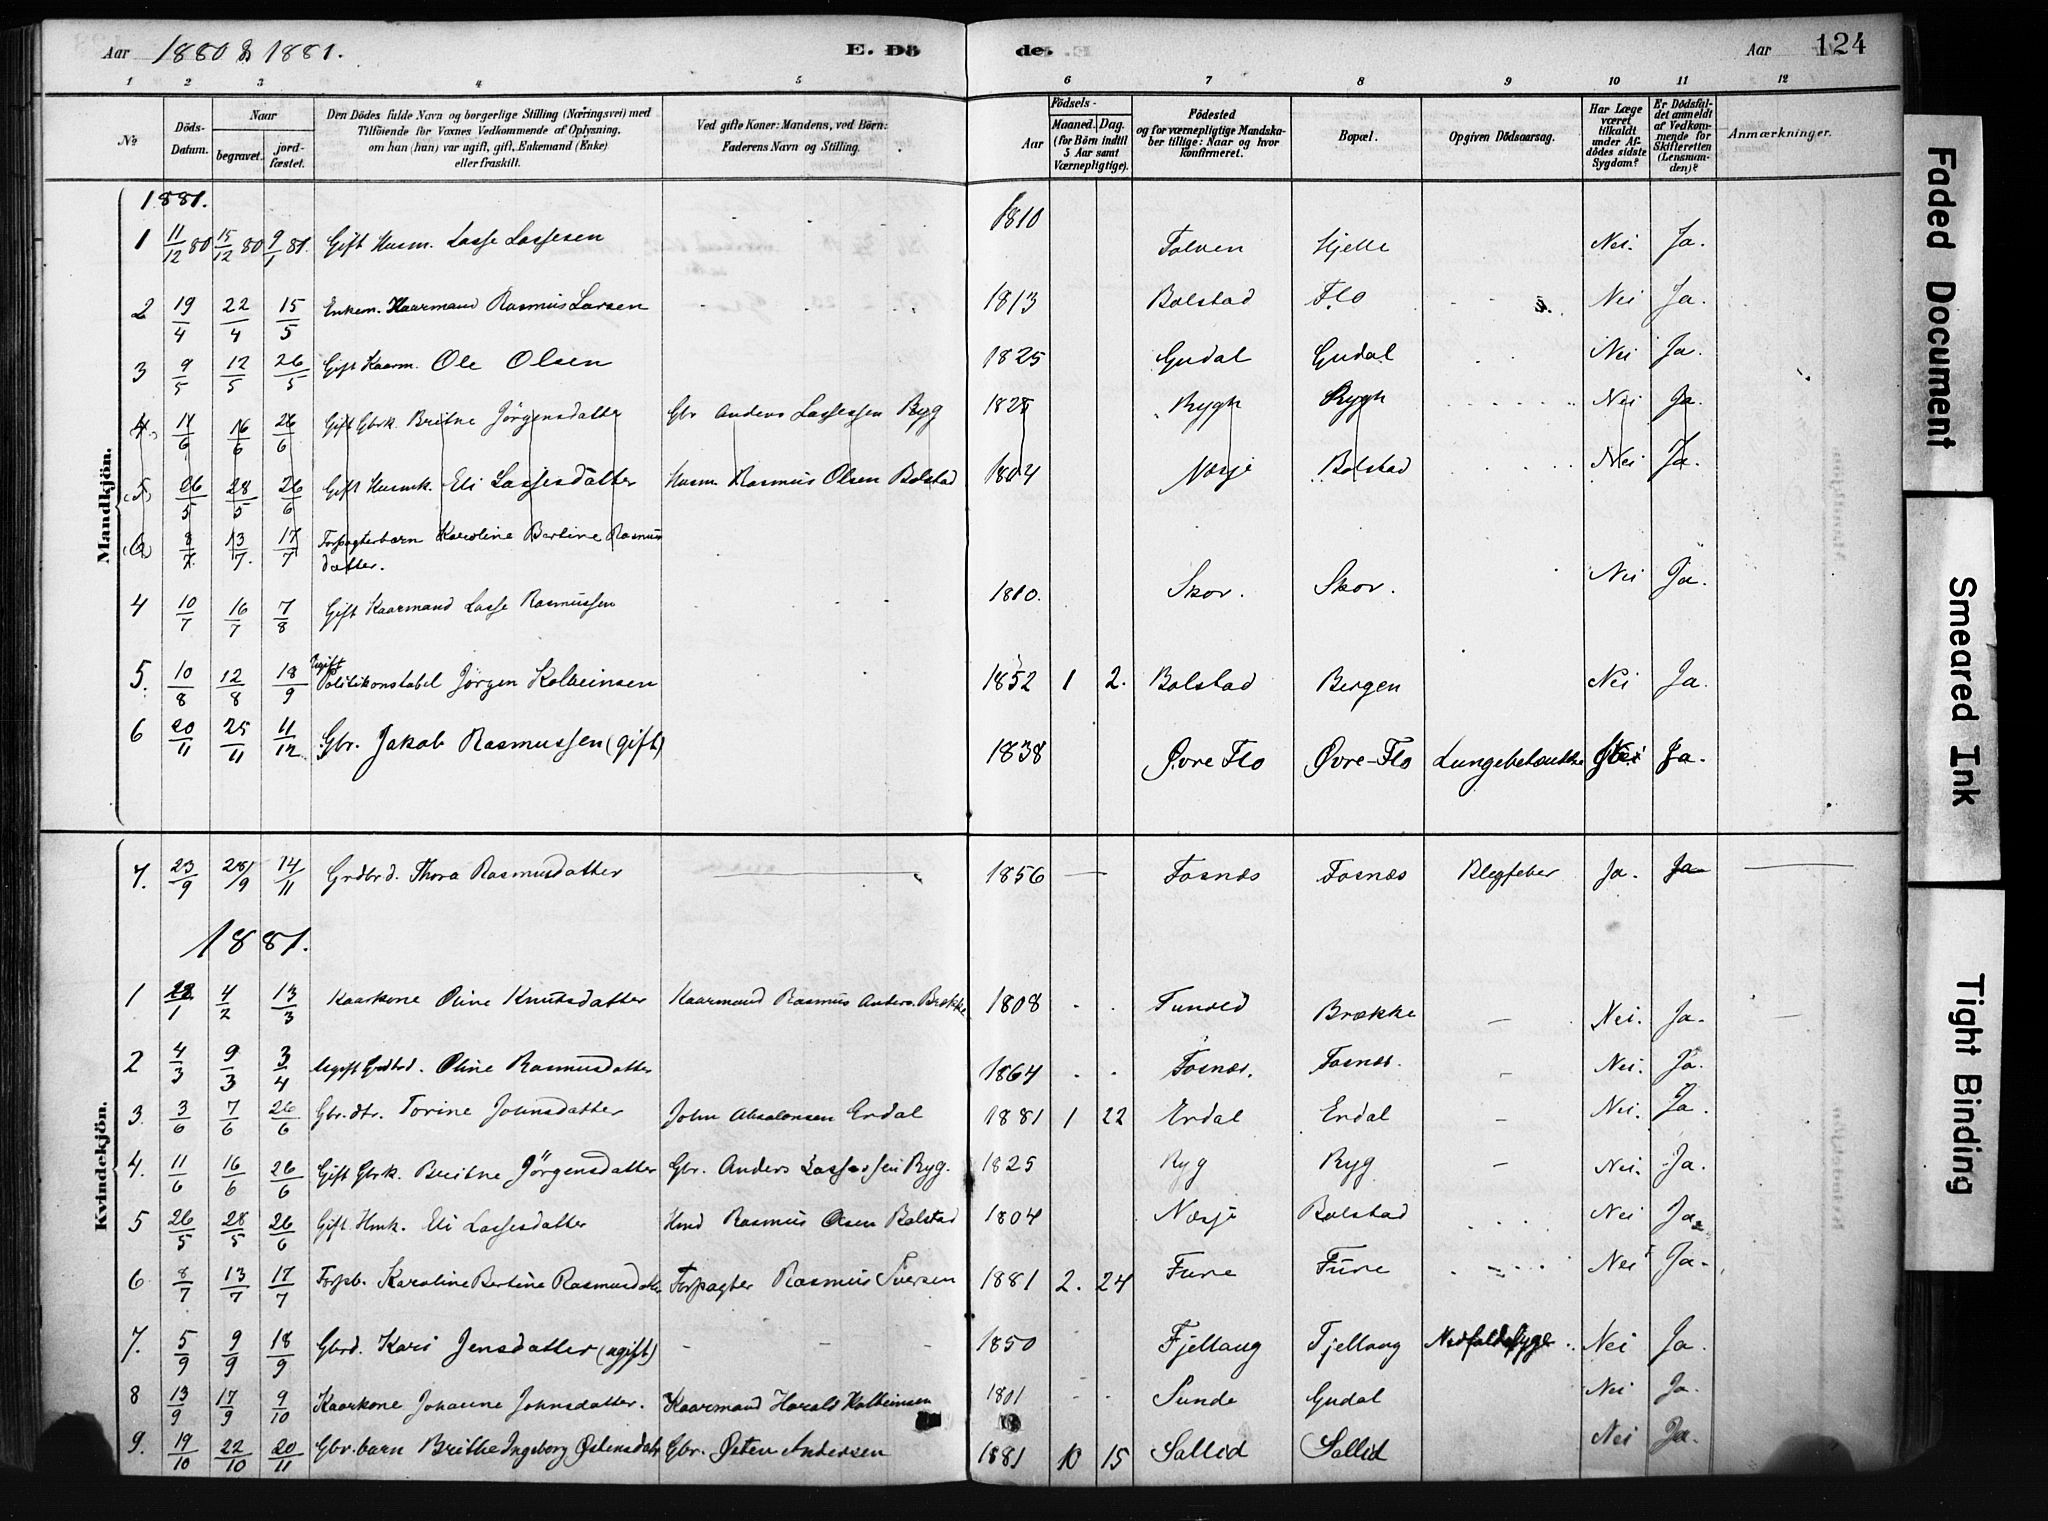 Aar 1880 & 1881. E. Dö de. E. Aar 124
1 2 3 4 5 6 7 8 9 10 11 12
No. Döds-Datum. Naar begravet. jordfæstet. Den Dödes fulde Navn og borgerlige Stilling (Næringsvei) med Tilföiende for Voxnes Vedkommende af Oplysning, om han (hun) var ugift, gift, Enkemand (Enke) eller fraskilt. Ved gifte Koner: Mandens, ved Börn: Faderens Navn og Stilling. Födsels- Aar Maaned. Dag. (for Börn indtil 5 Aar samt Værnepligtige). Födested og for værnepligtige Mandskaber tillige: Naar og hvor konfirmeret. Bopæl. Opgiven Dödsaarsag. Har Læge været tilkaldt under Afdödes sidste Sygdom? Er Dödsfaldet anmeldt af Vedkommende for Skifteretten (Lensmanden)? Anmærkninger.
Mandkjön.
1881.
1 11/12 80 15/12 80 9/1 81. Gift Husm. Lasse Lassesen 1810 Tolven Hjelle Nei. Ja.
2 19/4 22/4 15/5 Enkem. Kaarmand Rasmus Larsen 1813 Bolstad Flo Nei Ja.
3 9/5 12/5 26/5 Gift Kaarm. Ole Olsen 1825 Gudal Gudal Nei Ja.
4 11/6 16/6 26/6 Gift Gbrk. Britne Jörgensdatter Gbr Anders Lassessen Ryg 1825 Rygh Rygh Nei Ja.
5 26/5 28/5 26/6 Gift Husmk. Eli Lassesdatter Husm. Rasmus Olsen Bolstad 1804 Nesje Bolstad Nei Ja.
6 8/7 13/7. 17/7 Forpagterbarn Karoline Bertine Rasmus
datter.
4 10/7 16/7 7/8 Gift Kaarmand Lasse Rasmussen 1810. Skor. Skor. Nei Ja.
5. 10/8 12/8 18/9 Ugift Politikonstabel Jörgen Kolbeinsen 1852 1 2. Bolstad Bergen Nei Ja.
6 20/11 25/11 11/12 Gbr. Jakob Rasmussen (gift) 1838 Øvre Flo Øvre-Flo Nei Ja.
Kvindekjön.
7. 23/9 28/9 14/11 Grdbrd. Thora Rasmusdatter 1856 Fosnæs Fosnæs Blegfeber Ja. Ja
1881.
1 /1 4/2 13/3 Kaarkone Oline Knutsdatter Kaarmand Rasmus Anders. Brække 1808 Tunold Brække Nei. Ja.
2 4/3 9/3 3/4 Ugift Grdbrd. Oline Rasmusdatter 1864 Fosnæs. Fosnæs. Nei. Ja.
3. 3/6 7/6 26/6 Gbr.dtr. Torine Johnsdatter John Absalonsen Erdal 1881 1 22 Erdal Erdal Nei. Ja.
4. 11/6 16/6 26/6 Gift Gbrk. Britne Jörgensdatter Gbr. Anders Lassessen Ryg. 1825 Ryg Ryg Nei. Ja.
5 26/5 28/5 26/6 Gift Hmk. Eli Lassesdatter Hmd Rasmus Olsen Bolstad 1804 Nesje Bolstad Nei Ja
6 8/7 13/7 17/7 Forpb. Karoline Bertine Rasmusdatter Forpagter Rasmus Iversen 1881 2. 24 Fure Fure Nei Ja.
7. 5/9 9/9 18/9 Gbrd. Kari Jensdatter (ugift) 1850 Fjellaug Fjellaug Nedfaldssyge Nei Ja.
8 13/9 17/9 9/10 Kaarkone Johanne Johnsdatter. Kaarmand Harald Kolbeinsen 1801 Sunde Gudal Nei Ja.
9. 19/10 22/10 20/11 Gbr. barn Brithe Ingeborg Østensdatr Gbr. Østen Andersen 1881 10 15 Sollid Sollid Nei Ja.
Faded Document
Smeared Ink
Tight Binding